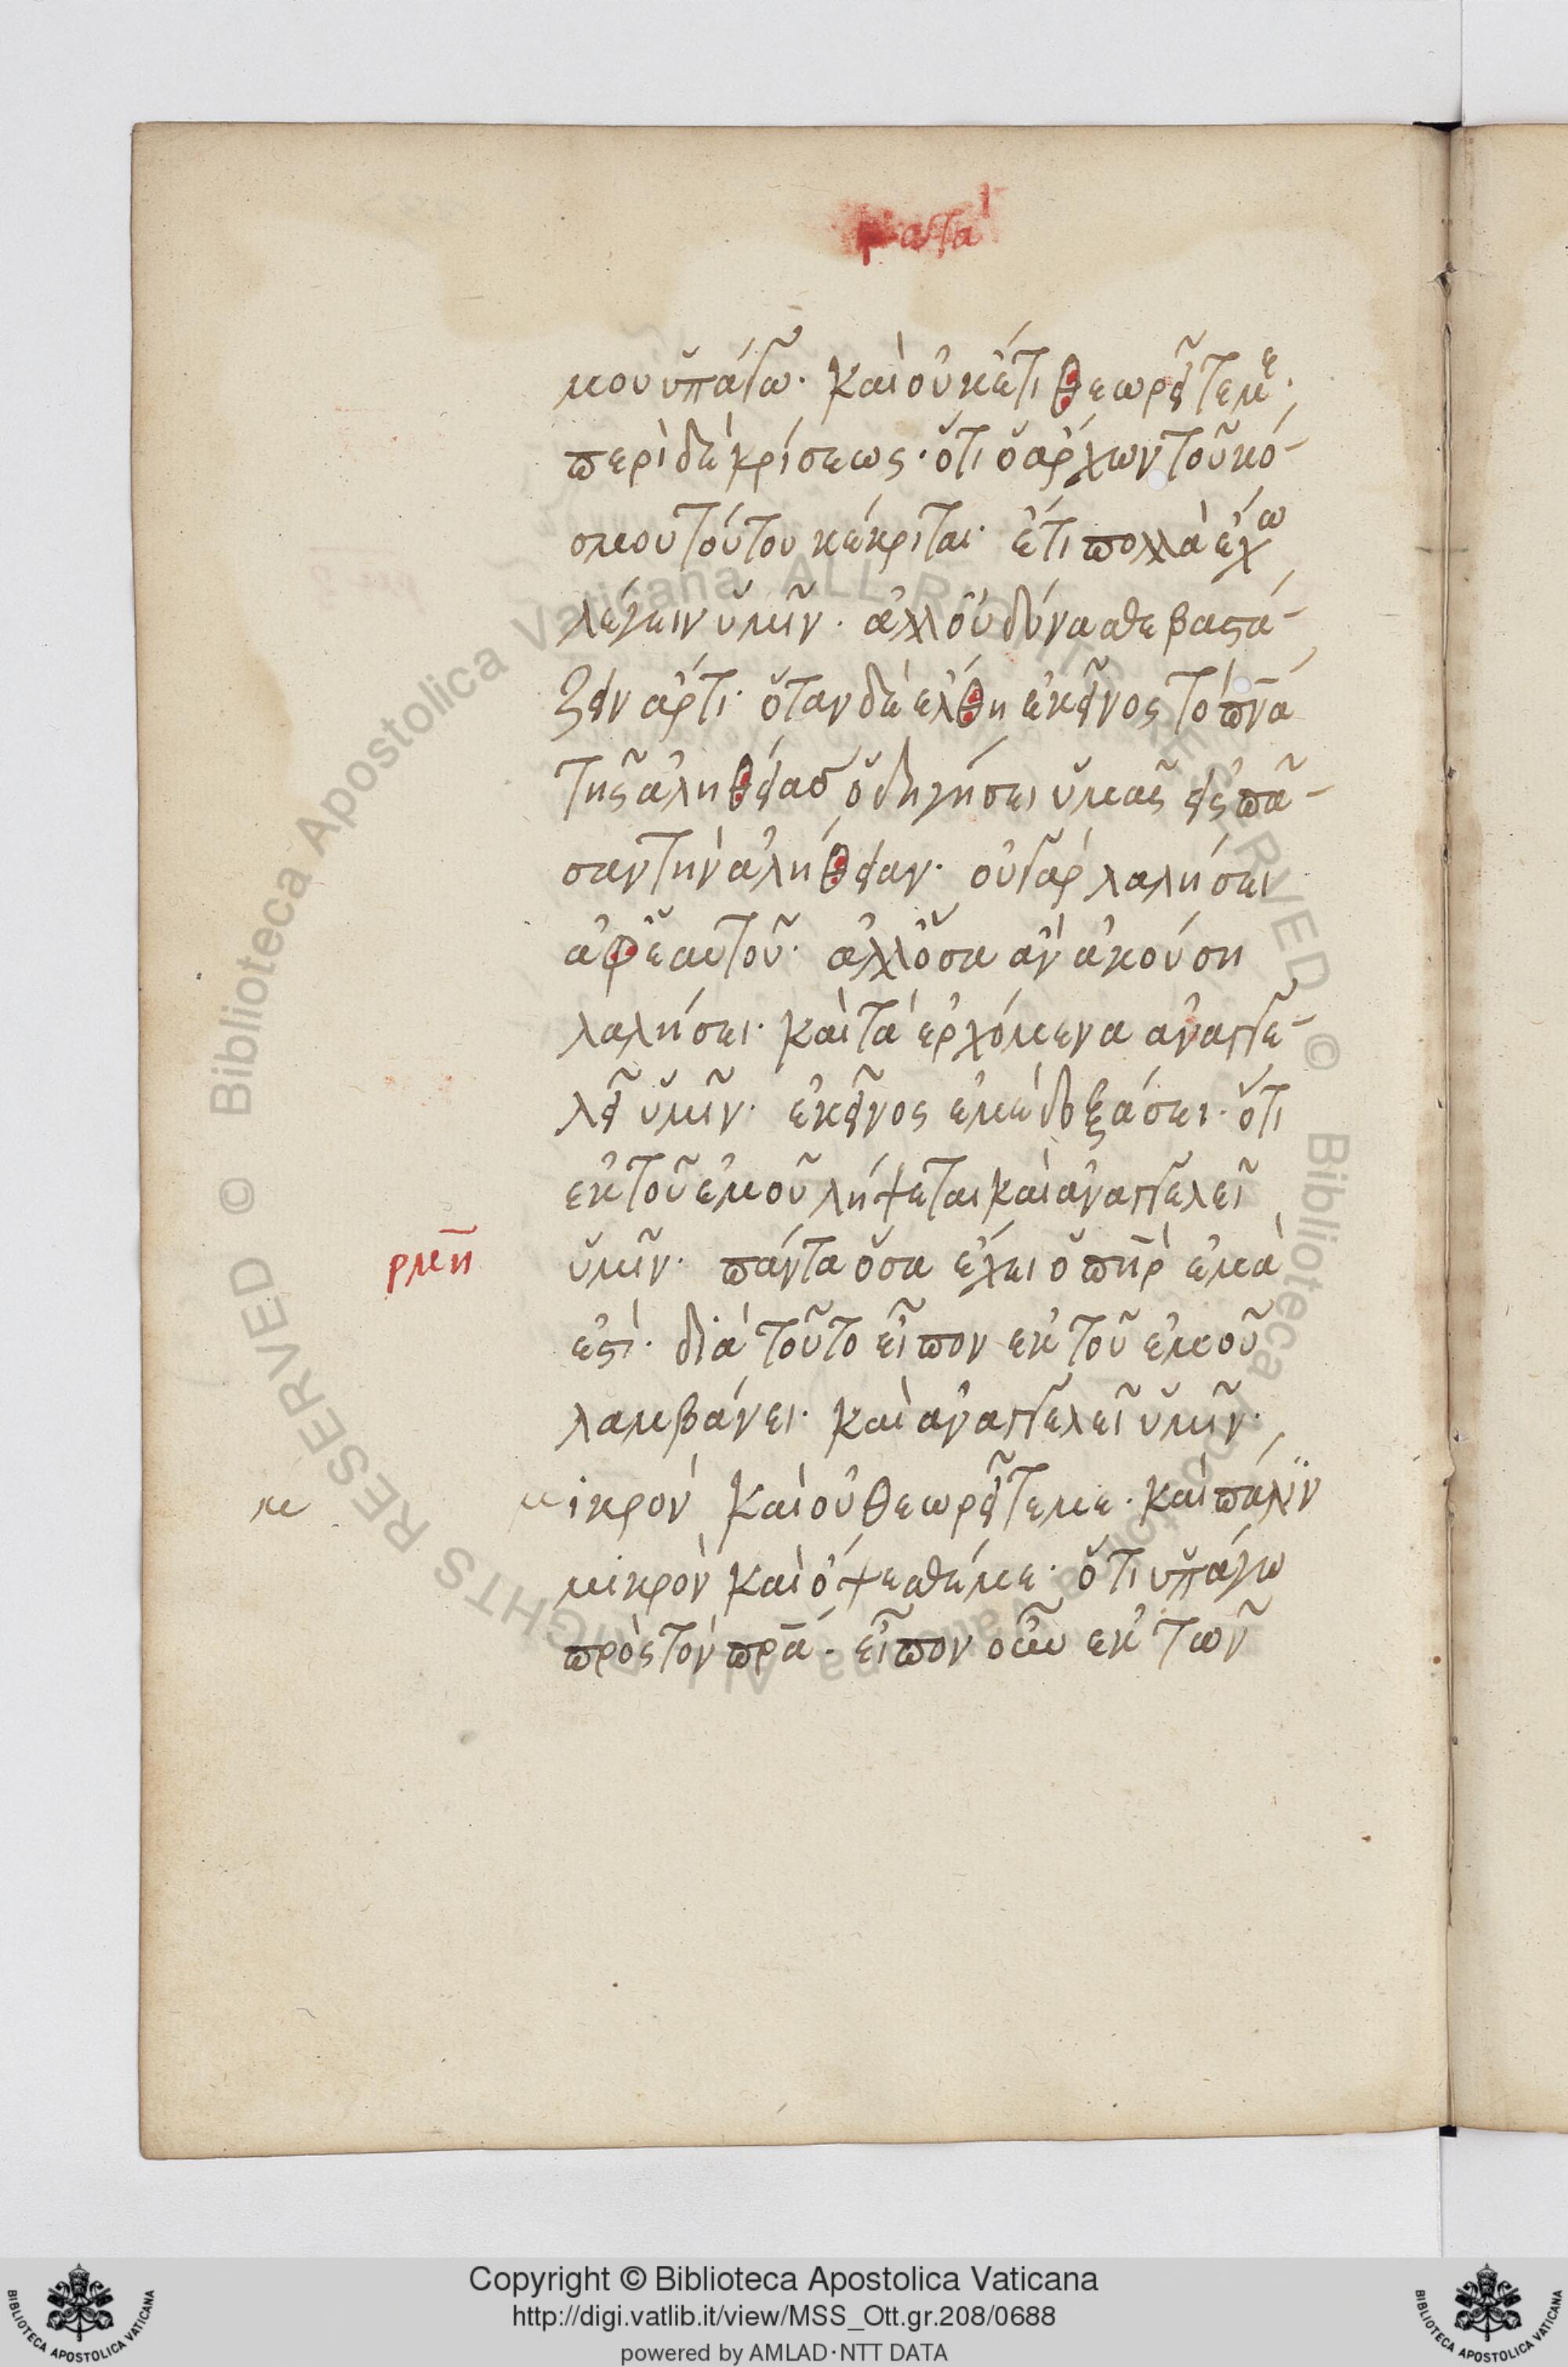 κατὰ
μου ὑπάγω· καὶ οὐκέτι θεωρεῖτέ με·
περὶ δὲ κρίσεως· ὅτι ὁ ἄρχων τοῦ κό-
σμου τούτου κέκριται· ἔτι πολλὰ ἔχω
λέγειν ὑμῖν· ἀλλ' οὐ δύνασθε βαστά-
ζειν ἄρτι· ὅταν δὲ ἔλθη ἐκεῖνος τὸ πνᾱ
τῆς ἀληθείας ὁδηγήσει ὑμᾶς εἰς πᾶ-
σαν τὴν ἀλήθειαν· οὐ γὰρ λαλήσει
ἀφ' ἑαυτοῦ· ἀλλ' ὅσα ἂν ἀκούση
λαλήσει· καὶ τὰ ἐρχόμενα ἀναγγε-
λεῖ ὑμῖν· ἐκεῖνος ἐμὲ δοξάσει· ὅτι
ἐκ τοῦ ἐμοῦ λήψεται καὶ ἀναγγελεῖ
ρμη ὑμῖν· πάντα ὅσα ἔχει ὁ πη̄ρ ἐμά
ἐστι· διὰ τοῦτο εἶπον ἐκ τοῦ ἐμοῦ
λαμβάνει· καὶ ἀναγγελεῖ ὑμῖν·
μ μικρὸν καὶ οὐ θεωρεῖτέ με· καὶ πάλιν
μικρὸν καὶ ὄψεσθέ με· ὅτι ὑπάγω
πρὸς τὸν πρ̄α· εἶπον οὖν ἐκ τῶν
Copyright © Biblioteca Apostolica Vaticana
http://digi.vatlib.it/view/MSS_Ott.gr.208/0688
powered by AMLAD·NTT DATA
BIBLIOTECA APOSTOLICA VATICANA
BIBLIOTECA APOSTOLICA VATICANA
© Biblioteca Apostolica Vaticana ALL RIGHTS RESERVED © Biblioteca Apostolica Vaticana ALL RIGHTS RESERVED